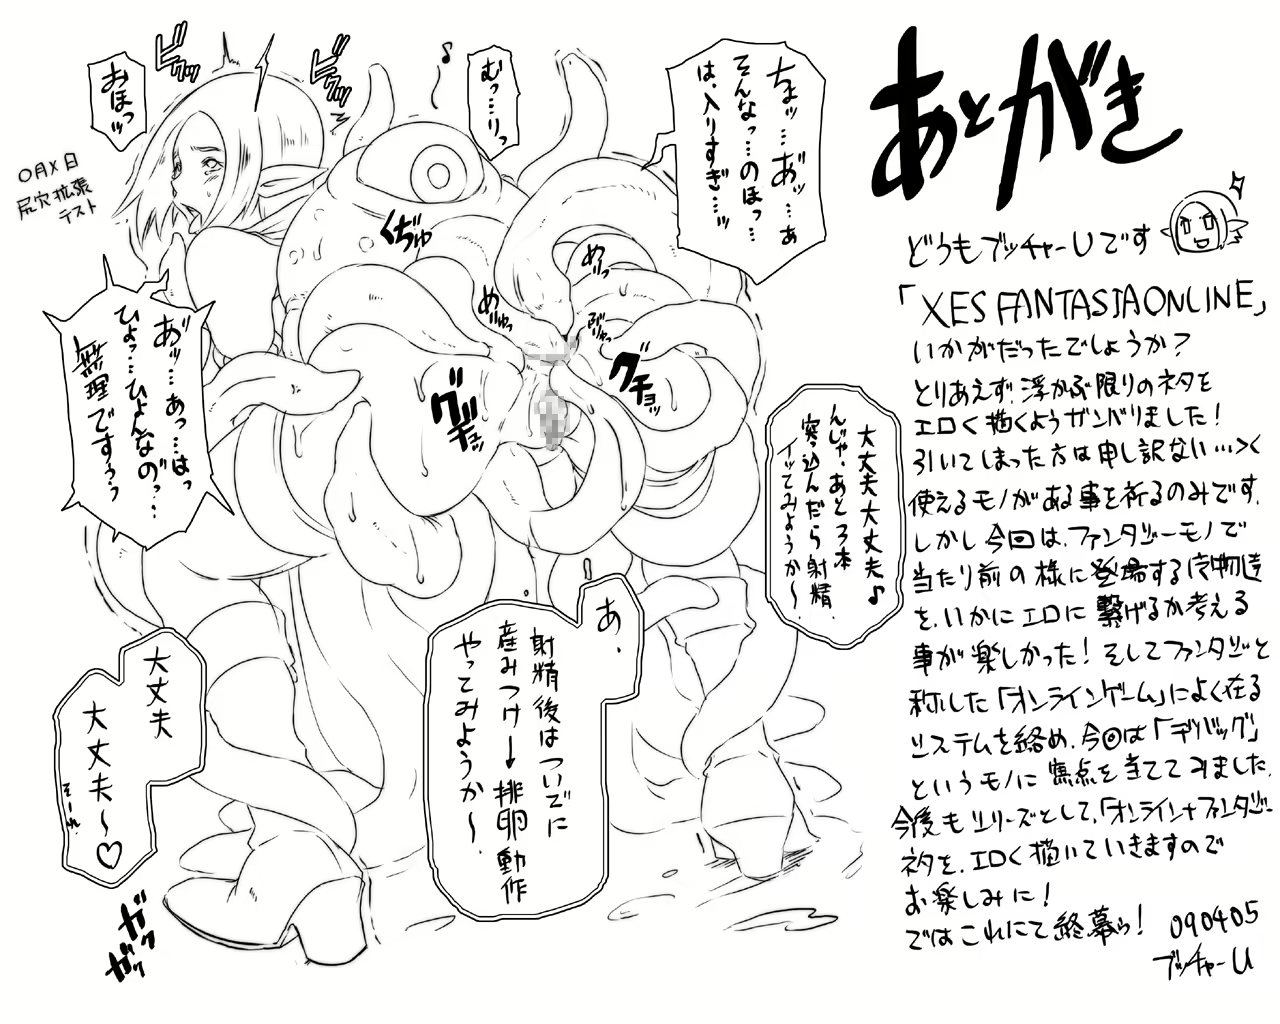 あとがき
どうもブッチャーUです
「XES FANTASIA ONLINE」
いかがだったでしょうか?
とりあえず浮かぶ限りのネタを
エロく描くようガンバりました!
引いてしまった方は申し訳ない…><
使えるモノがある事を祈るのみです.
しかし今回は、ファンタジーモノで
当たり前の様に登場する
を、いかにエロに繋げるか考える
事が楽しかった! そしてファンタジーと
称した「オンラインゲーム」によく在る
システムを絡め、今回は「デバッグ」
というモノに焦点を当ててみました.
今後もシリーズとして、「オンライン+ファンタジー」
ネタを、エロく描いていきますので
お楽しみに!
ではこれにて終幕ゥ!
090405
ブッチャーU
ちょッ…あ゛ッ…あぁ
そんなっ…のほっ…
は、入りすぎ…ッ
むっ…りっ
♪
ビクッ
ビクッ
おほッッ
〇月×日
尻穴拡張
テスト
くぢゅ
めりっ
めりゅっ
ぶりゅっ
グチョッ
グギュッ
あ゛ッ…あっ…はっ
ひょっ…ひょんなの゛っ…
無理ですぅぅ
大丈夫大丈夫♪
んじゃ、あと3本
突っ込んだら射精
イッてみようか〜
あ、
射精後はついでに
産みつけ→排卵動作
やってみようか〜.
大丈夫
大丈夫〜♡
そーれ
ガクガクッ